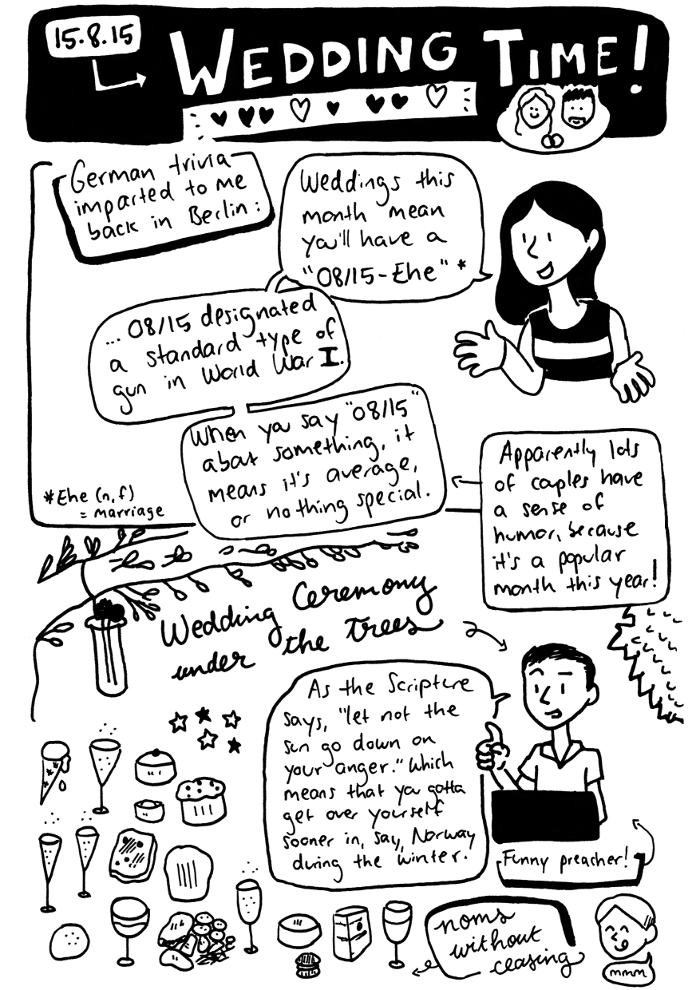 15.8.15
WEDDING TIME!
German trivia
imparted to me
back in Berlin:
Weddings this
month mean
you'll have a
"08/15-Ehe" *
... 08/15 designated
a standard type of
gun in World War I.
When you say "08/15"
about something, it
means it's average,
or nothing special.
*Ehe (n, f)
= marriage
Apparently lots
of couples have
a sense of
humor, because
it's a popular
month this year!
Wedding Ceremony
under the trees
As the Scripture
says, "let not the
sun go down on
your anger." Which
means that you gotta
get over yourself
sooner in, say, Norway
during the winter.
Funny preacher!
noms
without
ceasing
mmm